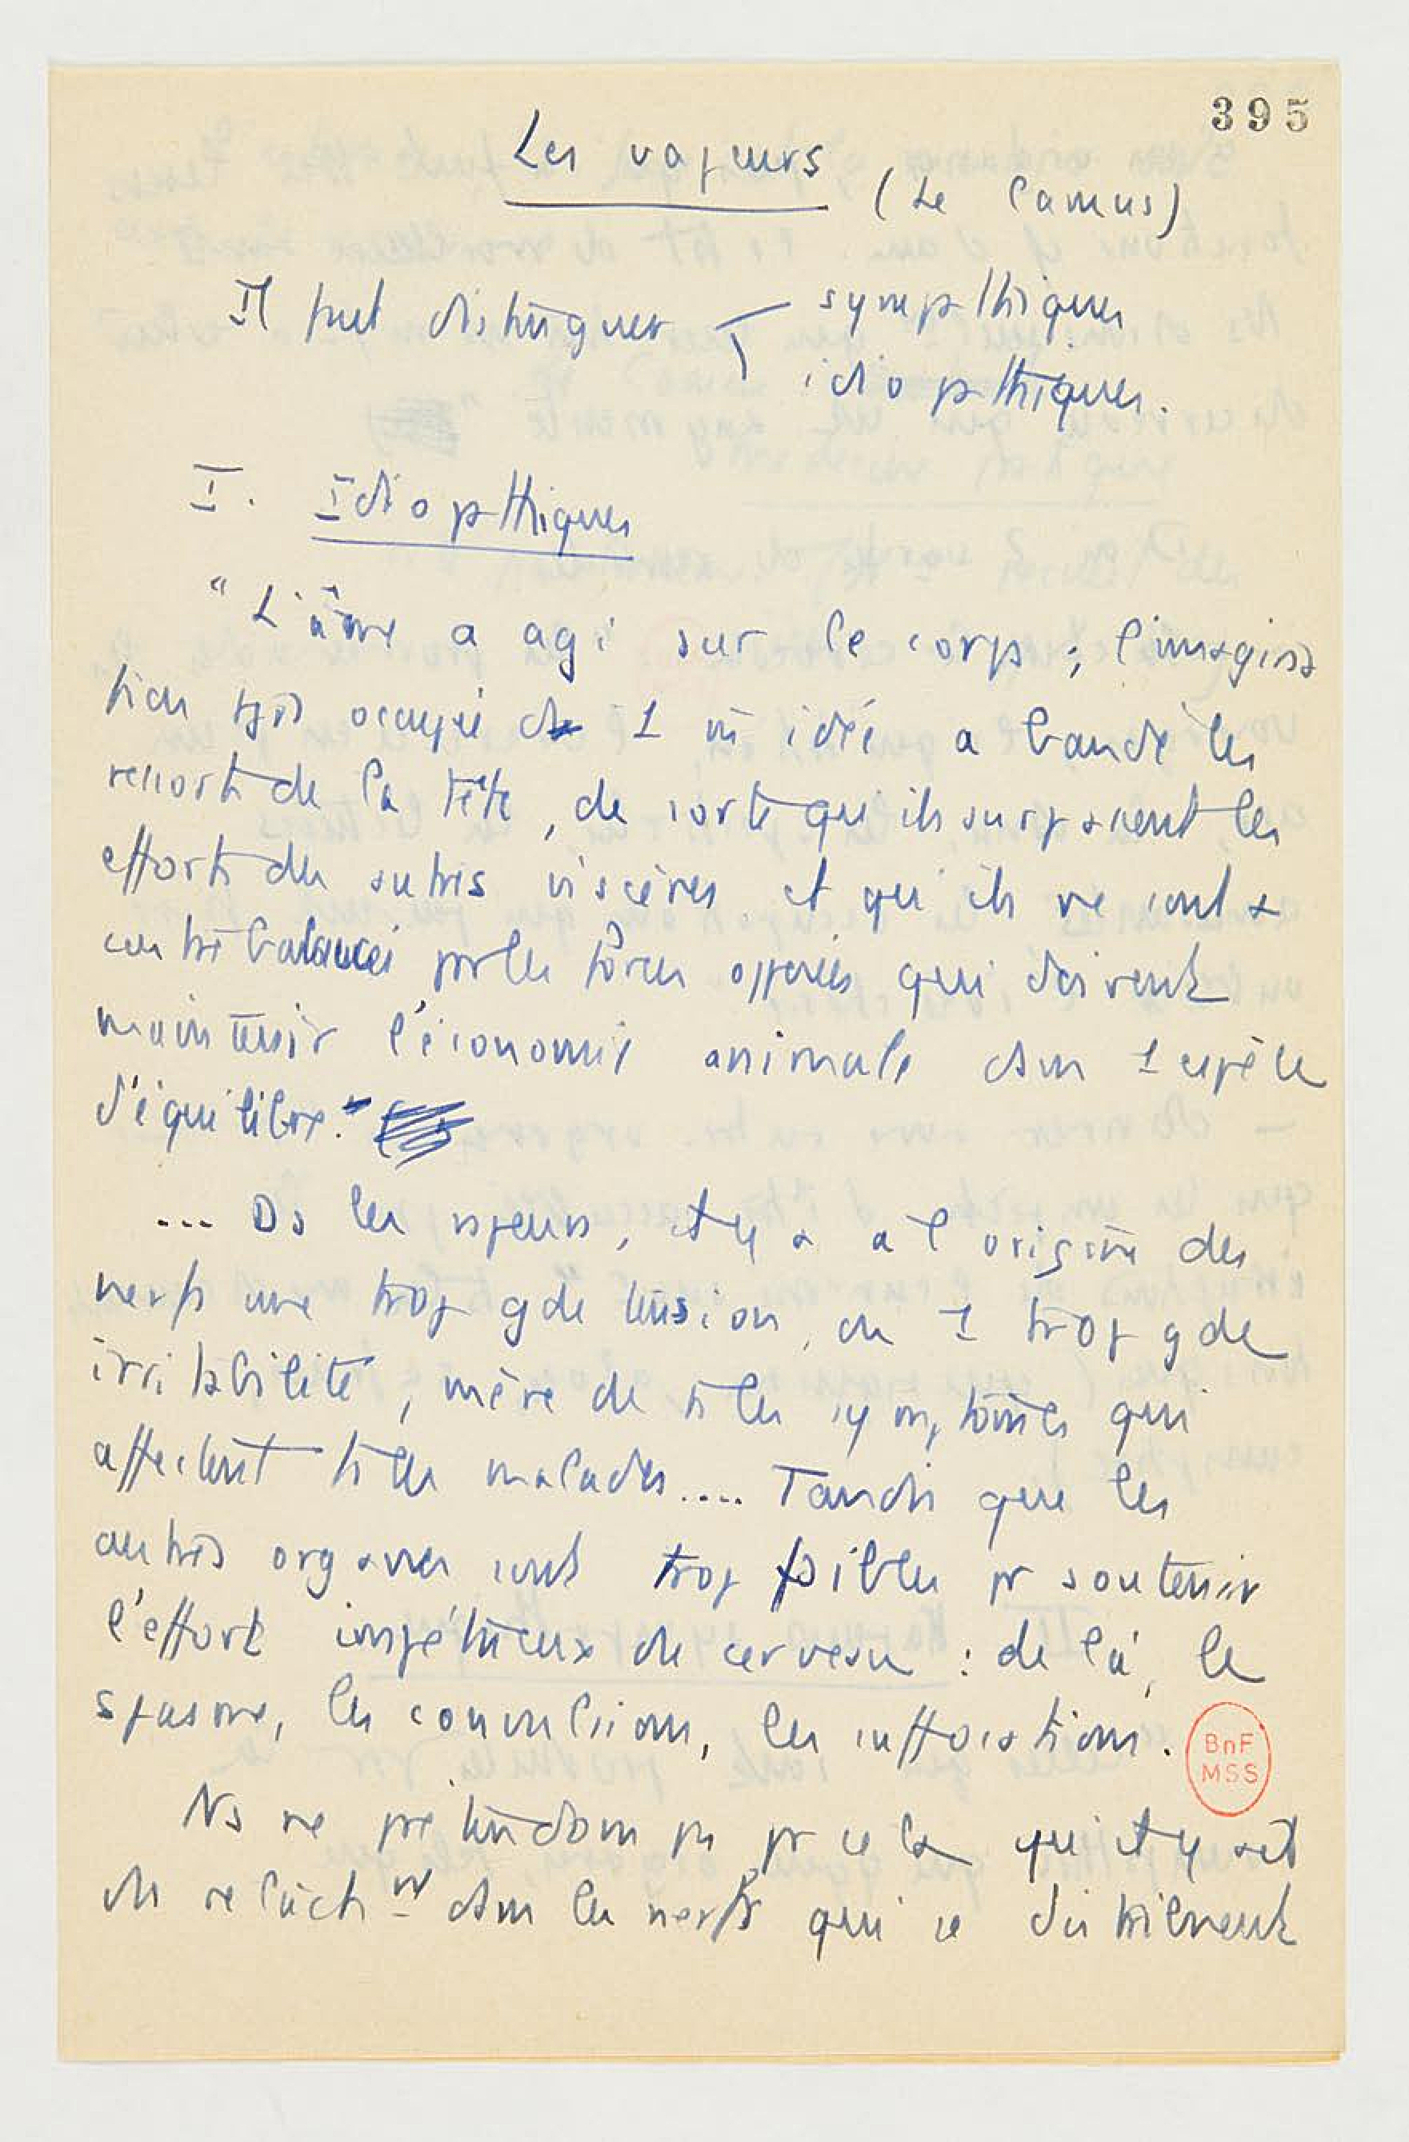 395
Les vapeurs (Le Camus)
Il faut distinguer sympathiques
idiopathiques.
I. Idiopathiques
"L'âme a agi sur le corps ; l'imagina
tion trop occupée de 1 m idée a bandé les
ressorts de la tête, de sorte qu'ils surpassent les
efforts des autres viscères et qu'ils ne sont +
contrebalancés par les forces opposées qui doivent
maintenir l'économie animale dans 1 espèce
d'équilibre."
... Ds les vapeurs, il y a à l'origine des
nerfs une trop gde tension, ou 1 trop gde
irritabilité, mère de ts les symptômes qui
affectent ts les malades.... Tandis que les
autres organes sont trop faibles pr soutenir
l'effort impétueux du cerveau : de là, le
spasme, les convulsions, les suffocations.
BnF
MSS
Ns ne prétendons pas pr cela qu'il y ait
du relâchmt dans les nerfs qui se distribuent